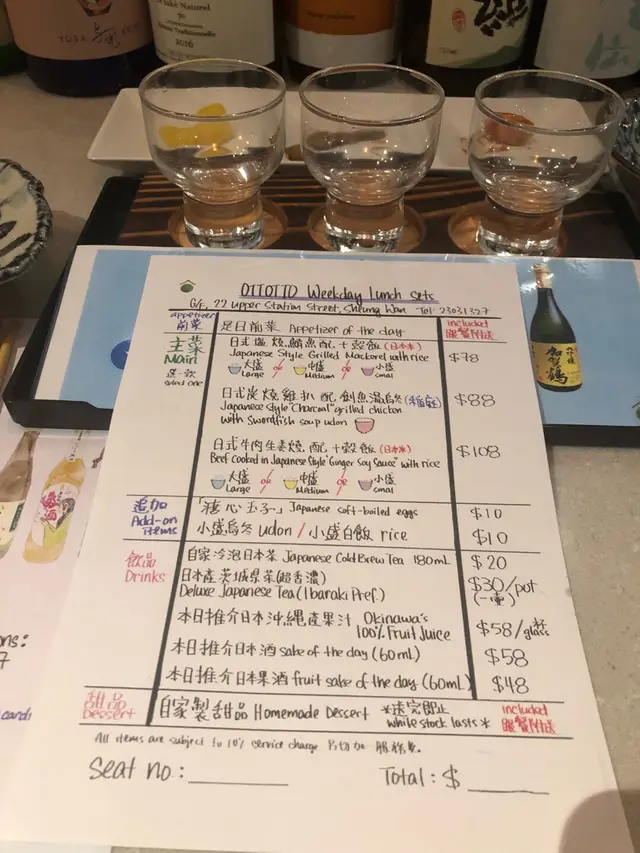 Saké Naturel
70
Traditionnelle
2016
OTTOTTO Weekday lunch sets
G/F, 22 upper Station Street, Sheung Wan Tel: 23031327
appetizer 前菜 是日前菜 Appetizer of the day included 跟餐附送
主菜 Main 選一款 select one
日式塩燒鯖魚配十穀飯 (日本米)
Japanese Style Grilled Mackerel with rice $78
大盛 Large or 中盛 Medium or 小盛 small
日式炭燒雞扒配劍魚湯烏冬 (稻庭)
Japanese style "Charcoal" grilled chicken $88
with Swordfish soup udon
日式牛肉生姜燒配十穀飯 (日本米)
Beef cooked in Japanese Style "Ginger Soy Sauce" with rice $108
大盛 Large or 中盛 Medium or 小盛 small
追加 Add-on items
「溏心玉子」 Japanese soft-boiled eggs $10
小盛烏冬 udon / 小盛白飯 rice $10
飲品 Drinks
自家冷泡日本茶 Japanese Cold Brew Tea 180mL $20
日本產茨城県茶 (超香濃) $30/pot
Deluxe Japanese Tea (Ibaraki Pref.) (一壺)
本日推介日本沖縄產果汁 Okinawa's
100% Fruit Juice $58/glass
本日推介日本酒 sake of the day (60mL) $58
本日推介日本果酒 fruit sake of the day (60mL) $48
甜品 Dessert 自家製甜品 Homemade Dessert *送完即止 included
while stock lasts* 跟餐附送
All items are subject to 10% service charge 另切加一服務費.
Seat no: Total: $
加賀鶴
ons:
7
candi